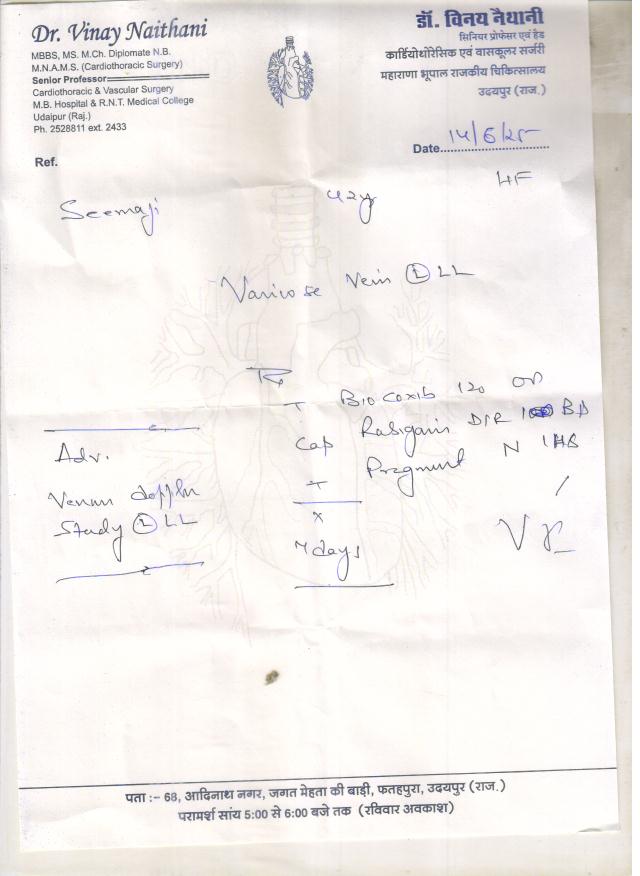 Dr. Vinay Naithani
MBBS, MS. M.Ch. Diplomate N.B.
M.N.A.M.S. (Cardiothoracic Surgery)
Senior Professor
Cardiothoracic & Vascular Surgery
M.B. Hospital & R.N.T. Medical College
Udaipur (Raj.)
Ph. 2528811 ext. 2433
डॉ. विनय नैथानी
सिनियर प्रोफेसर एवं हैड
कार्डियोथोरेसिक एवं वासकूलर सर्जरी
महाराणा भूपाल राजकीय चिकित्सालय
उदयपुर (राज.)
Date 14/6/25
Ref.
Seemaji 42y
Varicose Vein Ⓛ LL
Rx
T Biocoxib 120 OD
Cap DSR BD
T N 1HS
x
7 days
Adv.
Venous doppler
Study Ⓛ LL
पता :– 68, आदिनाथ नगर, जगत मेहता की बाड़ी, फतहपुरा, उदयपुर (राज.)
परामर्श सांय 5:00 से 6:00 बजे तक (रविवार अवकाश)